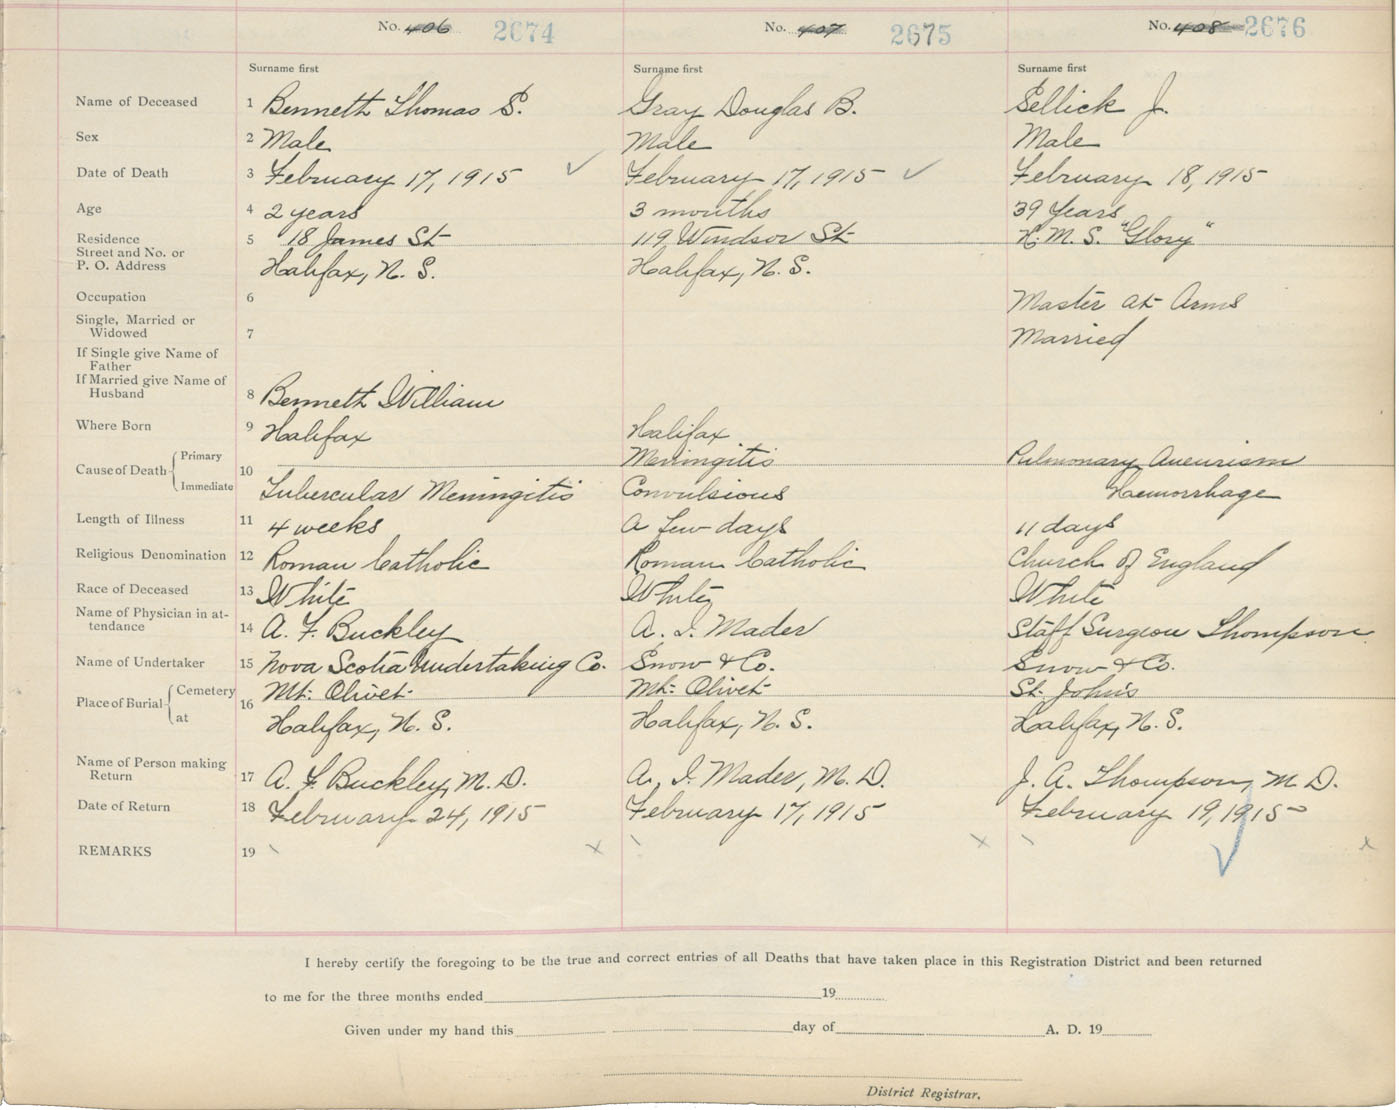 No. 406 2674 No. 407 2675 No. 408 2676
Surname first Surname first Surname first
Name of Deceased 1 Bennett Thomas S. Gray Douglas B. Sellick J.
Sex 2 Male Male Male
Date of Death 3 February 17, 1915 ✓ February 17, 1915 ✓ February 18, 1915
Age 4 2 years 3 months 39 Years
Residence 5 18 James St 119 Windsor St H.M.S. "Glory"
Street and No. or
P. O. Address Halifax, N. S. Halifax, N. S.
Occupation 6 Master at Arms
Single, Married or
Widowed 7 Married
If Single give Name of
Father
If Married give Name of
Husband 8 Bennett William
Where Born 9 Halifax Halifax
Cause of Death Primary 10 Meningitis Pulmonary Aneurism
Immediate Tubercular Meningitis Convulsions Haemorrhage
Length of Illness 11 4 weeks A few days 11 days
Religious Denomination 12 Roman Catholic Roman Catholic Church of England
Race of Deceased 13 White White White
Name of Physician in at-
tendance 14 A. F. Buckley A. I. Mader Staff Surgeon Thompson
Name of Undertaker 15 Nova Scotia Undertaking Co. Snow & Co. Snow & Co.
Place of Burial Cemetery 16 Mt. Olivet Mt. Olivet St. John's
at Halifax, N. S. Halifax, N. S. Halifax, N. S.
Name of Person making
Return 17 A. F. Buckley, M. D. A. I. Mader, M. D. J. A. Thompson, M D.
Date of Return 18 February 24, 1915 February 17, 1915 February 19, 1915
REMARKS 19
I hereby certify the foregoing to be the true and correct entries of all Deaths that have taken place in this Registration District and been returned
to me for the three months ended 19
Given under my hand this day of A. D. 19
District Registrar.